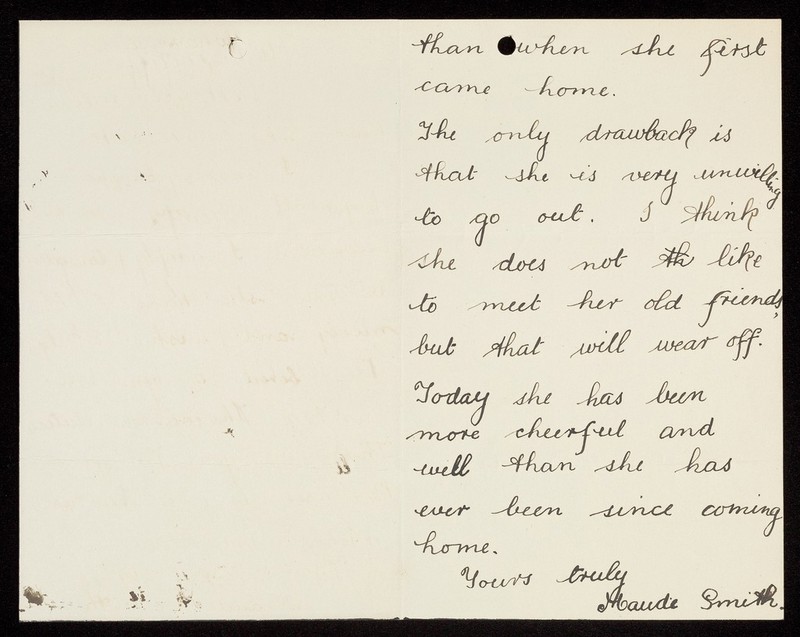 than when she first
came home.
The only drawback is
that she is very unwilling
to go out. I think
she does not th like
to meet her old friends,
but that will wear off.
Today she has been
more cheerful and
well than she has
ever been since coming
home.
Yours truly
Maude Smith.